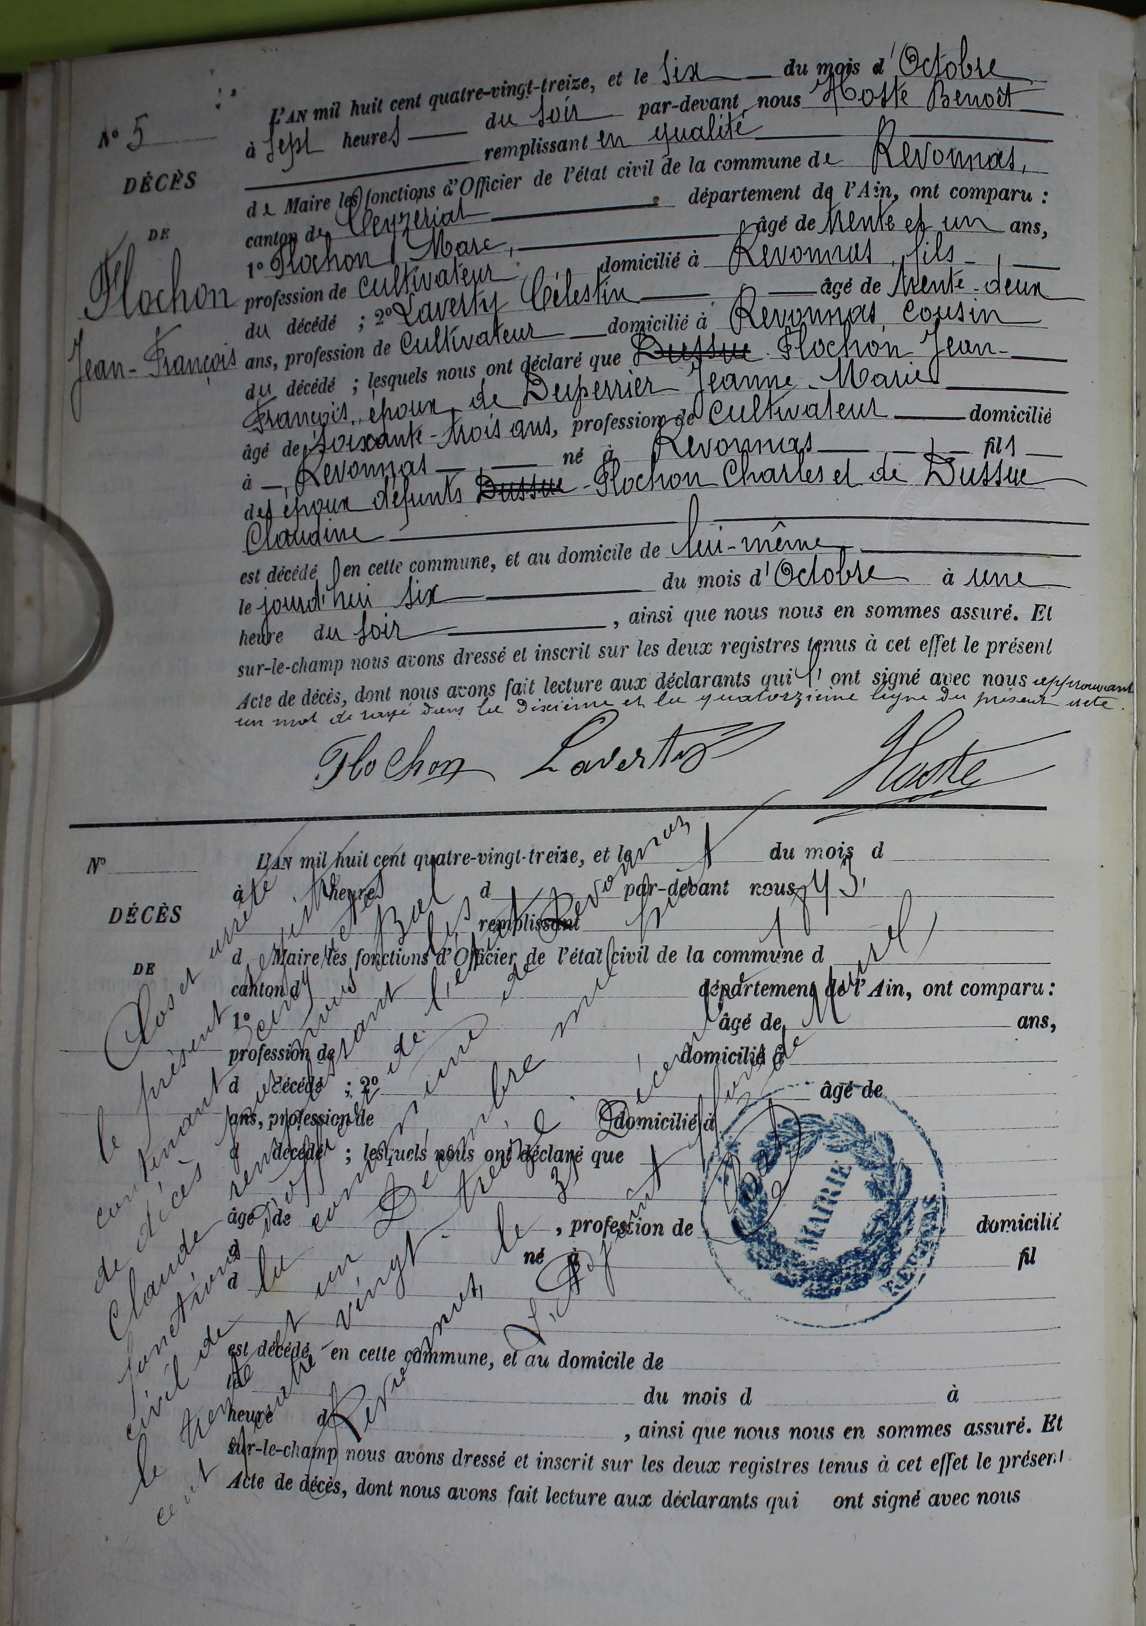 N° 5
DÉCÈS
DE
Flochon
Jean-François
L'AN mil huit cent quatre-vingt-treize, et le six du mois d'Octobre
à sept heures du soir par-devant nous Hoste Benoît
remplissant en qualité
de Maire les fonctions d'Officier de l'état civil de la commune de Revonnas,
canton de Ceyzériat département de l'Ain, ont comparu :
1° Flochon Marc, âgé de trente et un ans,
profession de cultivateur domicilié à Revonnas, fils
du décédé ; 2° Laverty Célestin âgé de trente-deux
ans, profession de cultivateur domicilié à Revonnas, cousin
du décédé ; lesquels nous ont déclaré que Dussue Flochon Jean-
François, époux de Duperrier Jeanne-Marie
âgé de soixante-trois ans, profession de cultivateur domicilié
à Revonnas né à Revonnas fils
des époux défunts Dussue Flochon Charles et de Dussue
Claudine
est décédé en cette commune, et au domicile de lui-même
le jourd'hui six du mois d'Octobre à une
heure du soir, ainsi que nous nous en sommes assuré. Et
sur-le-champ nous avons dressé et inscrit sur les deux registres tenus à cet effet le présent
Acte de décès, dont nous avons fait lecture aux déclarants qui ont signé avec nous approuvant
un mot de rayé dans la dixième et la quatorzième ligne du présent acte.
Flochon Laverty Hoste
N°
DÉCÈS
DE
L'AN mil huit cent quatre-vingt-treize, et le du mois d
à heure d par-devant nous
remplissant
d Maire les fonctions d'Officier de l'état civil de la commune d
canton d département de l'Ain, ont comparu :
1° âgé de ans,
profession de domicilié à
d décédé ; 2° âgé de
ans, profession de domicilié à
d décédé ; lesquels nous ont déclaré que
âgé de , profession de domicilié
à né à fil
d
est décédé en cette commune, et au domicile de
le du mois d à
heure d , ainsi que nous nous en sommes assuré. Et
sur-le-champ nous avons dressé et inscrit sur les deux registres tenus à cet effet le présent
Acte de décès, dont nous avons fait lecture aux déclarants qui ont signé avec nous
Clos et arrêté
le présent registre
contenant cinq actes
de décès par nous Bal
Claude remplissant les
fonctions d'officier de l'état
civil de la commune de Revonnas
le trente et un Décembre mil huit
cent quatre-vingt-treize.
Revonnas, le 31 Décembre 1893.
L'Adjoint faisant fonctions de Maire,
Bal
MAIRIE
REVONNAS